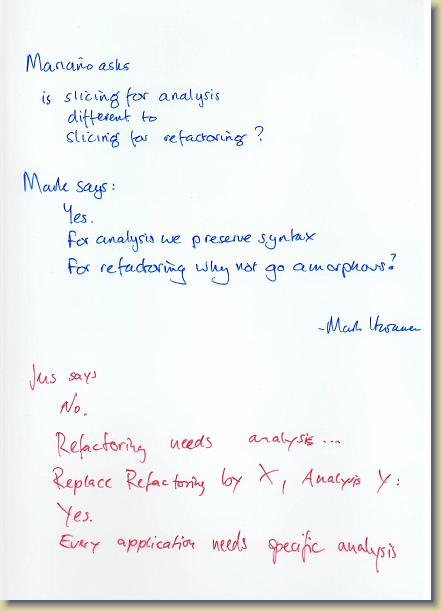 Mariano asks
is slicing for analysis
different to
slicing for refactoring?
Mark says:
Yes.
For analysis we preserve syntax
For refactoring why not go amorphous?
-Mark Harman
Jens says
No.
Refactoring needs analysis...
Replace Refactoring by X, Analysis Y:
Yes.
Every application needs specific analysis